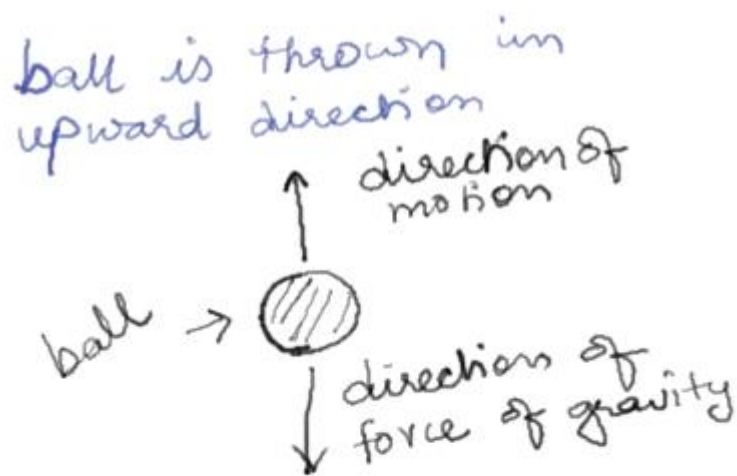 ball is thrown in
upward direction
direction of
motion
ball
direction of
force of gravity